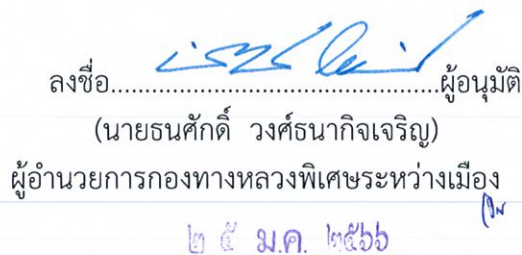 ลงชื่อ................................................ผู้อนุมัติ
(นายธนศักดิ์ วงศ์ธนากิจเจริญ)
ผู้อำนวยการกองทางหลวงพิเศษระหว่างเมือง
๒ ๕ ม.ค. ๒๕๖๖